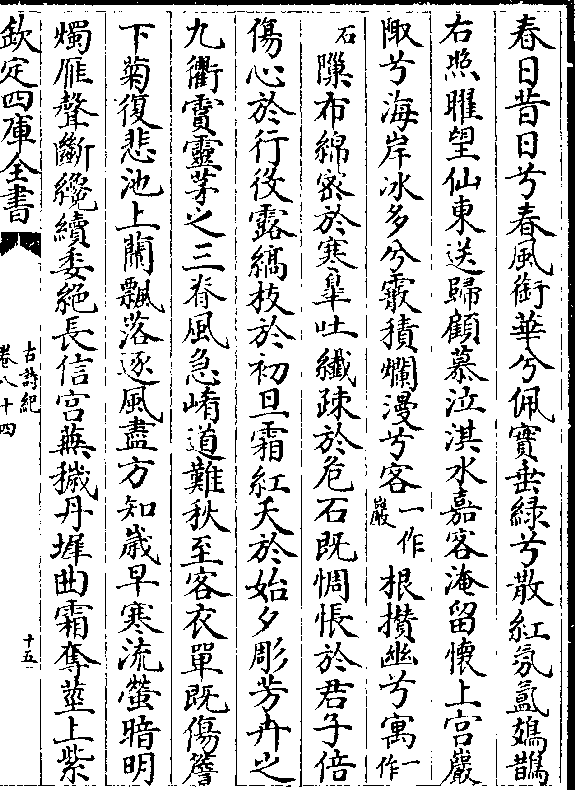 春日昔日兮春風銜華兮佩寳垂緑兮散紅氛氲鳷鵲
右照曜望仙東送歸顧慕泣淇水嘉客淹留懷上宫巖
陬兮海岸冰多兮霰積爛漫兮客一作巖根攅幽兮寓一作
石隟布綿宻於寒臯吐纎疎於危石既惆悵於君子倍
傷心於行役露縞枝於初旦霜紅天於始夕彫芳卉之
九衢霣靈茅之三脊風急崤道難秋至客衣單既傷簷
下菊復悲池上蘭飄落逐風盡方知嵗早寒流螢暗明
燭雁聲斷纔續委絶長信宫蕪穢丹墀曲霜奪莖上紫
欽定四庫全書
古詩紀
卷八十四
十五